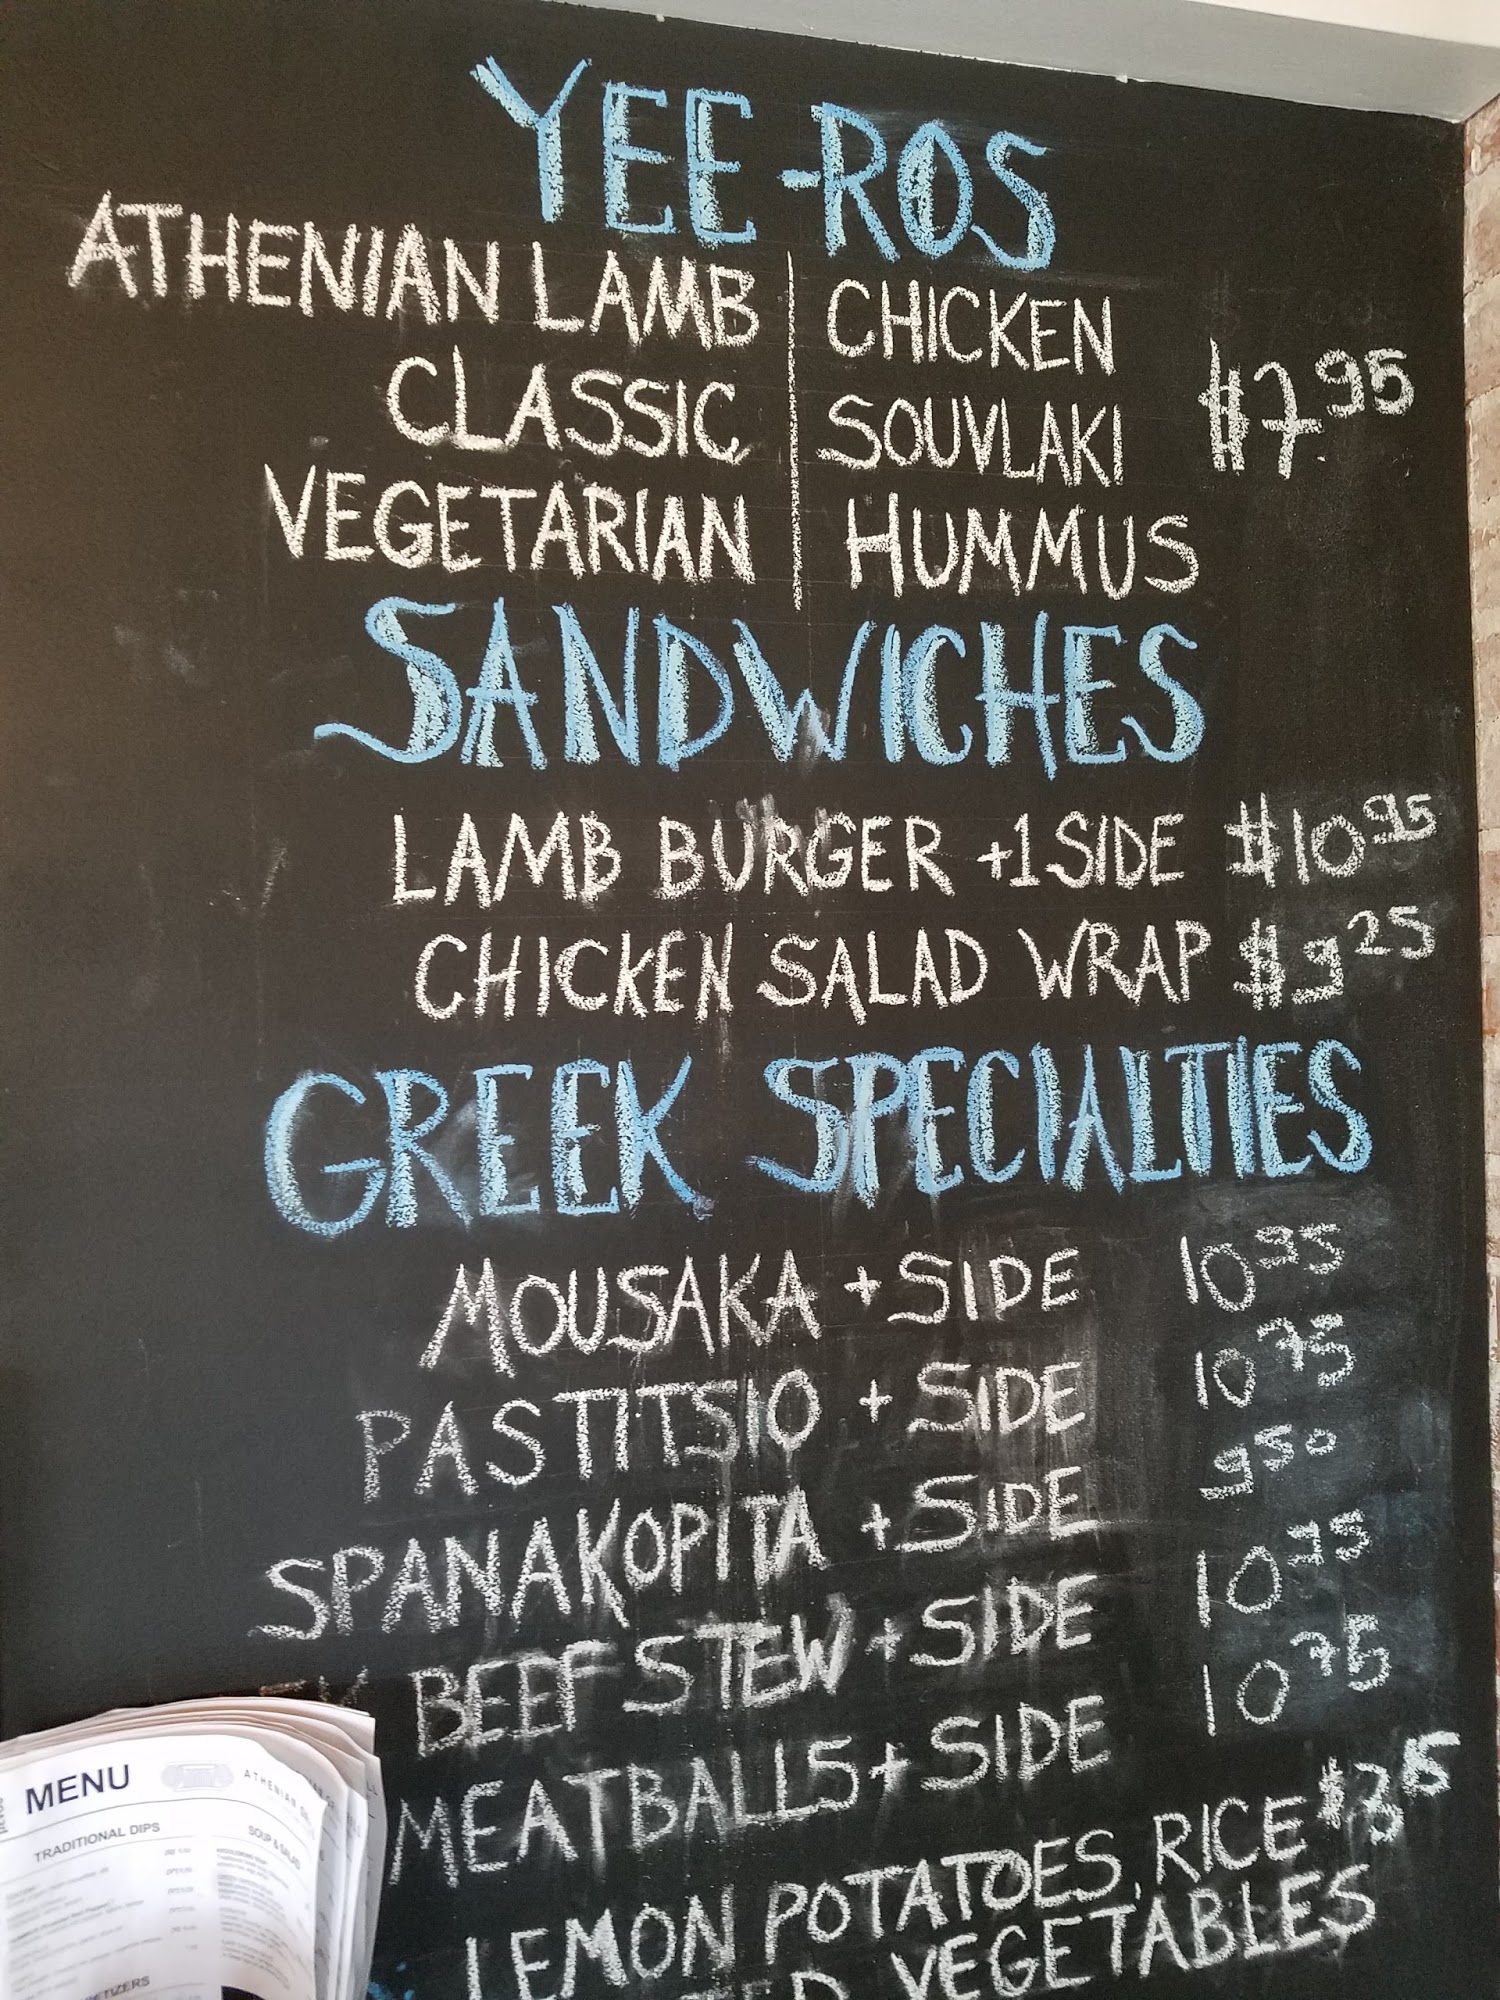 YEE-ROS
ATHENIAN LAMB | CHICKEN
CLASSIC | SOUVLAKI $7.95
VEGETARIAN | HUMMUS
SANDWICHES
LAMB BURGER +1 SIDE $10 95
CHICKEN SALAD WRAP $9 25
GREEK SPECIALTIES
MOUSAKA + SIDE 10 95
PASTITSIO + SIDE 10 75
SPANAKOPITA + SIDE 9 50
BEEF STEW + SIDE 10 75
MEATBALLS + SIDE 10 75
LEMON POTATOES, RICE
VEGETABLES
MENU
TRADITIONAL DIPS
SOUP & SALAD